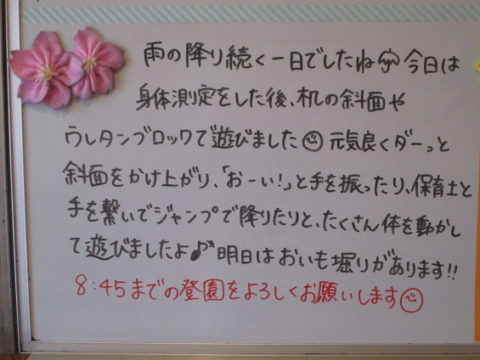 雨の降り続く一日でしたね☂今日は
身体測定をした後、机の斜面や
ウレタンブロックで遊びました☺元気良くダーっと
斜面をかけ上がり、「おーい!」と手を振ったり、保育士と
手を繋いでジャンプで降りたりと、たくさん体を動かし
て遊びましたよ♪明日はおいも堀りがあります!!
8:45までの登園をよろしくお願いします☺